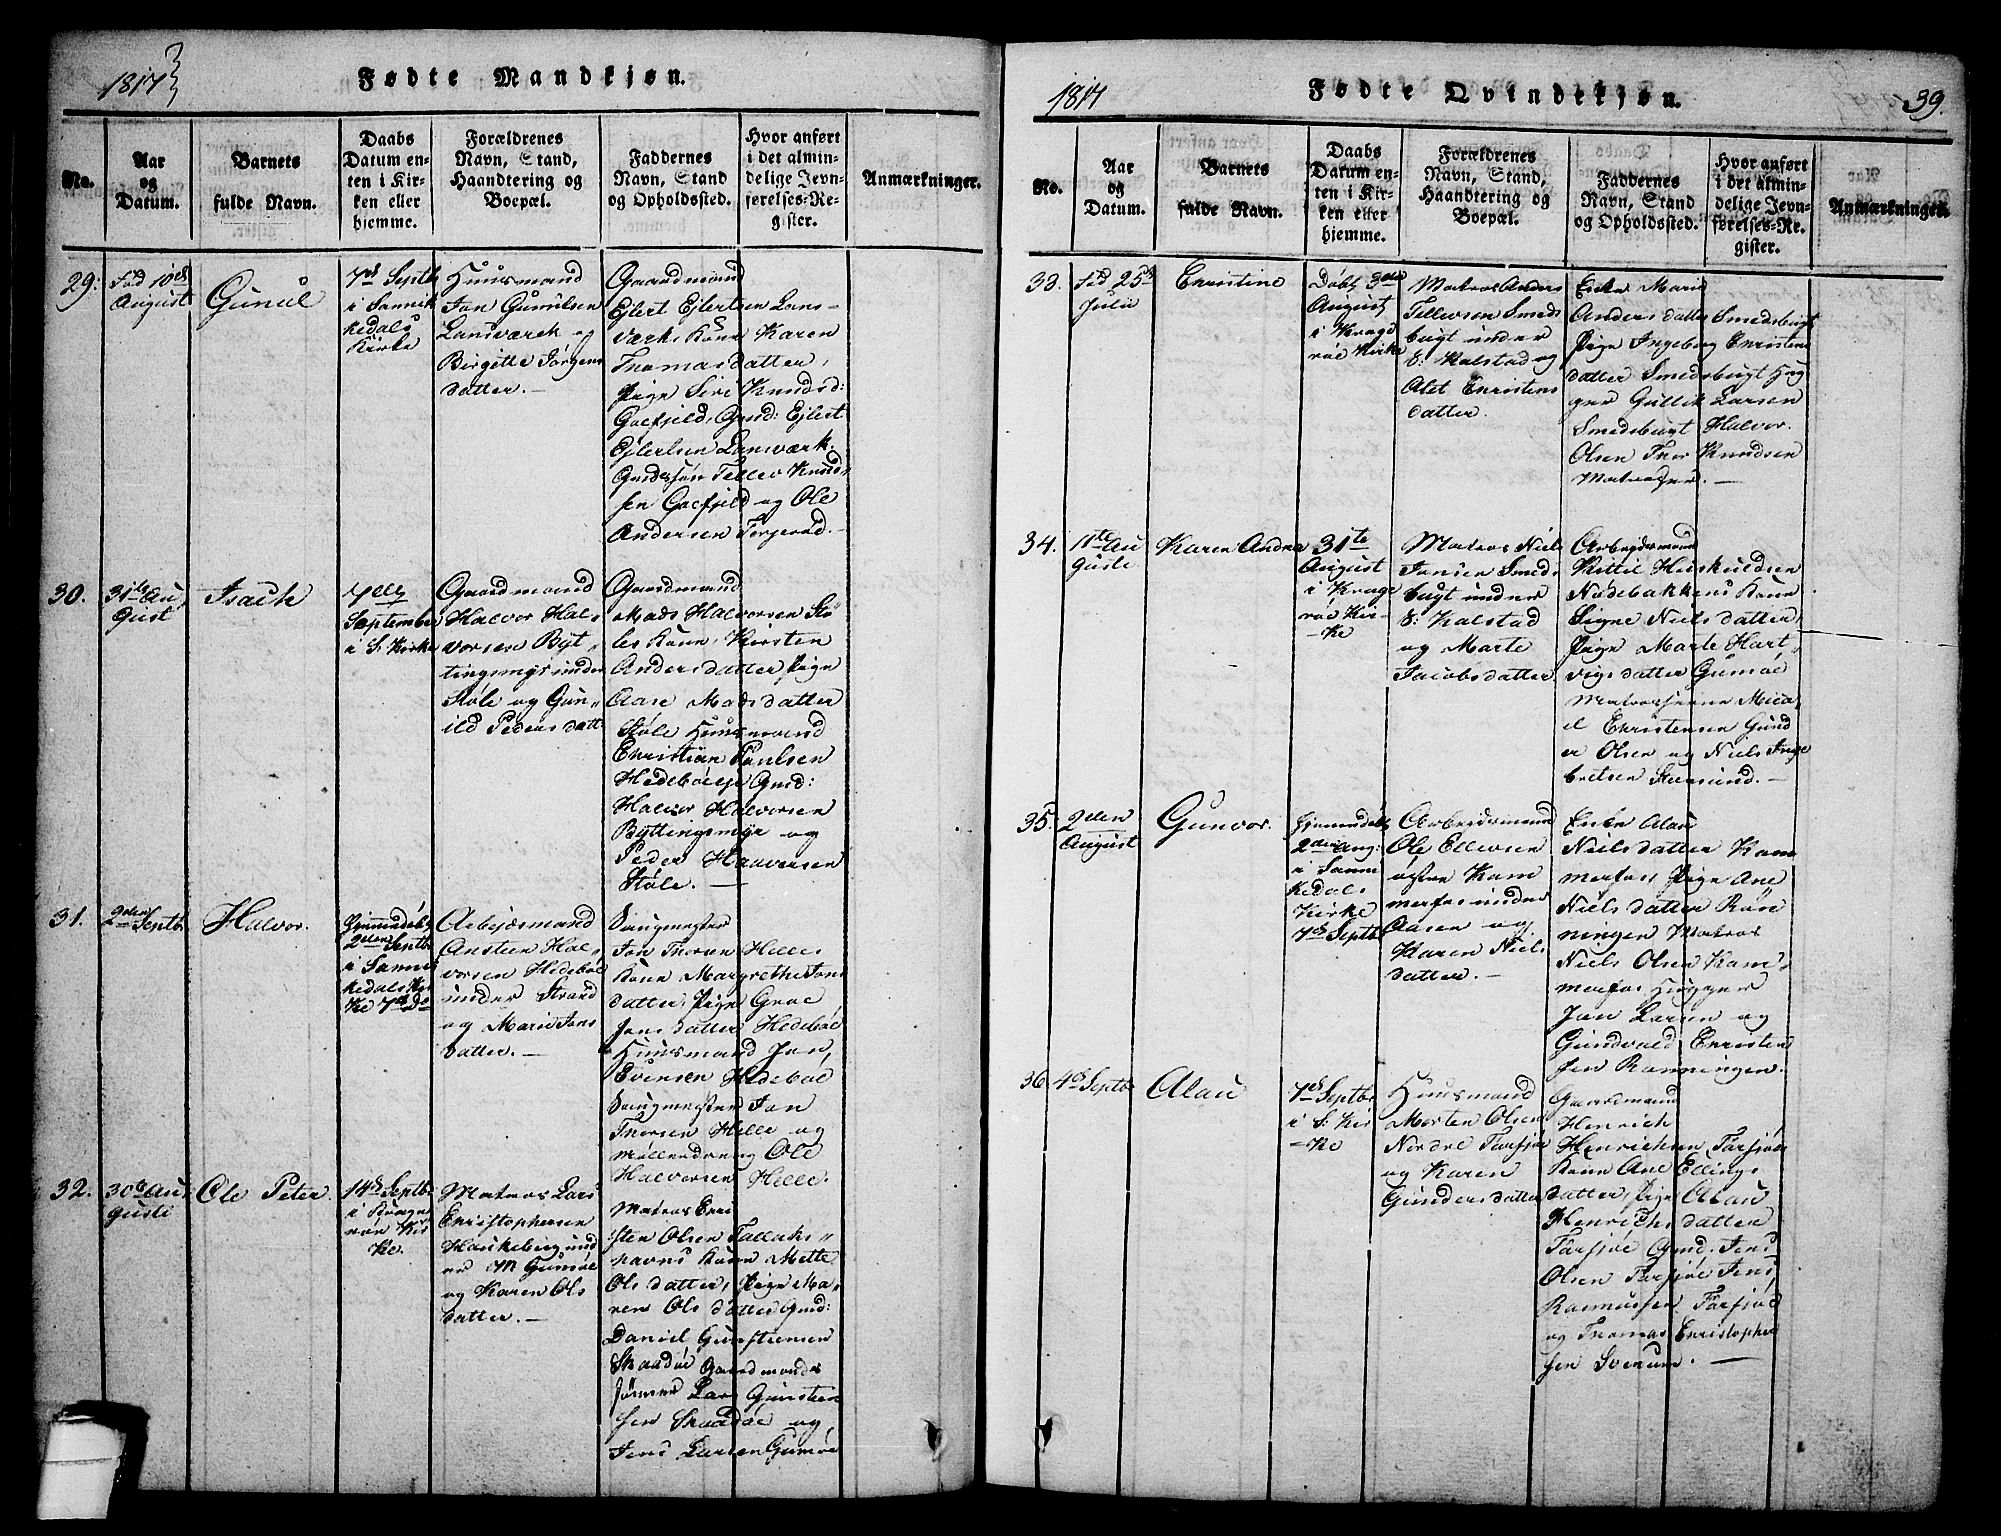 1817
Fødte Mandkjøn.
No.
Aar
og
Datum.
Barnets
fulde Navn.
Daabs
Datum en-
ten i Kir-
ken eller
hjemme.
Forældrenes
Navn, Stand,
Haandtering og
Boepæl.
Faddernes
Navn, Stand
og Opholdssted.
Hvor anført
i det almin-
delige Jevn-
førelses-Re-
gister.
Anmærkninger.
29.
Fød 10de
August
Gunul
7de Septb
i Sannik
kedals
Kirke
Huusmand
Jan Gunulsen
Landsværk og
Birgitte Jørgens
datter. —
Gaardmand
Ejlert Ejlertsen Lans-
værks Kone Karen
Thomasdatter,
Pige Siri Knudsd:
Goefjeld, Gmd: Ejlert
Ejlertsen Lansværk.
Gmdssøn Tellev Knud-
sen Goefjeld og Ole
Andersen Torjerød. —
30.
31te Au
gust
Isach
7de
September
i S: Kirke
Gaardmand
Halvor Hal-
vorsen Byt-
tingsmyr under
Støle og Gun-
ild Peders datt
Gaardmand
Mads Halvorsen Stø
les Kone, Kirsten
Andersdatter Pige
Aase Madsdatter
Støle Huusmand
Christian Poulsen
Hedebøeje Gmd:
Halvor Halvorsen
Byttingsmyr og
Peder Haaversen
Støle. —
31.
2den Septb
Halvor.
Hjemmedøbt
2den Septb
i Sanni
kedals Kir
ke 7de Do
Arbejdsmand
Ansteen Hal-
vorsen Hedeboe
under Strand
og Marie Jans
datter. —
Saugmester
Jan Thorsen Helles
Kone Margrethe Jans
datter, Pige Groe
Jans datter Hedeboe
Huusmand Jan
Evensen Hedeboe
Saugmester Jan
Thorsen Helle og
Møllerdreng Ole
Halvorsen Helle.
32.
30te Au
gusti
Ole Peter
14de Septb
i Krage
røe Kir
ke.
Matros Lars
Christophersen
Haukebierg und
er M Gumøe
og Karen Ols
datter. —
Matros Chri
sten Olsen Tallaks-
havns Kone Mette
Ols datter, Pige Ma-
ren Ols datter Gmd:
Daniel Gunsteensen
Skaadøe Gaardmands
sønner Lars Gunsteen
sen Skaadøe og
Jens Larsen Gumøe
1817
Fødte Qvindekjøn.
39.
No.
Aar
og
Datum.
Barnets
fulde Navn.
Daabs
Datum en-
ten i Kir-
ken eller
hjemme.
Forældrenes
Navn, Stand,
Haandtering og
Boepæl.
Faddernes
Navn, Stand
og Opholdssted.
Hvor anført
i det almin-
delige Jevn-
førelses-Re-
gister.
Anmærkninger.
33.
Fød 25de
Julii
Christine
Døbt 3die
August
i Krage
røe Kirke
Matros Anders
Tellevsen Smeds
bugt under
S: Kalstad og
Alet Christens
datter.
Enke Marie
Andersdatter Smedsbugt
Pige Ingeborg Christens
datter Smedsbugt Hug
ger Gullik Larsen
Smedsbugt Halvor
Olsen Thor Knudsen
Matroser. —
34.
11te Au
gusti
Karen Andrea
31te
August
i Krage
røe Kir-
ke
Matros Niels
Jansen Smeds
bugt under
S: Kalstad
og Marte
Jacobsdatter
Arbejdsmand
Kittil Herskuldsen
Nødebakkens Kone
Signe Niels datter,
Pige Marte Hart
vigs datter Gumøe
Matroserne Mica
el Christensen Gund
er Olsen og Niels Inge
bretsen Steensund. —
35.
2den
August
Gunvor.
Hjemmedøbt
2den Aug:
i Sanni
kedals
Kirke
7de Septb
Arbeidsmand
Ole Ellevsen
østre Kam
merfos under
Aasen og
Karen Niels
datter. —
Enke Alau
Nielsdatter Kam
merfos Pige Ane
Niels datter Røn
ningen Matros
Niels Olsen Kam
merfos Hugger
Jan Larsen og
Gundvald Christen
sen Rønningen.
36
4de Septb
Alau
7de Septb
i S: Kir
ke
Huusmand
Morten Olsen
Nordre Tarfjøe
og Karen
Gunders datter
Gaardmand
Henrich
Henrichsen Tarsjøes
Kone Ane Ellings
datter, Pige Alau
Henrichs datter
Tarsjøe Gmd. Jens
Olsen Tarsjøe Jens
Rasmussen Tarsjøe
og Thomas Christopher
sen Soerum. —